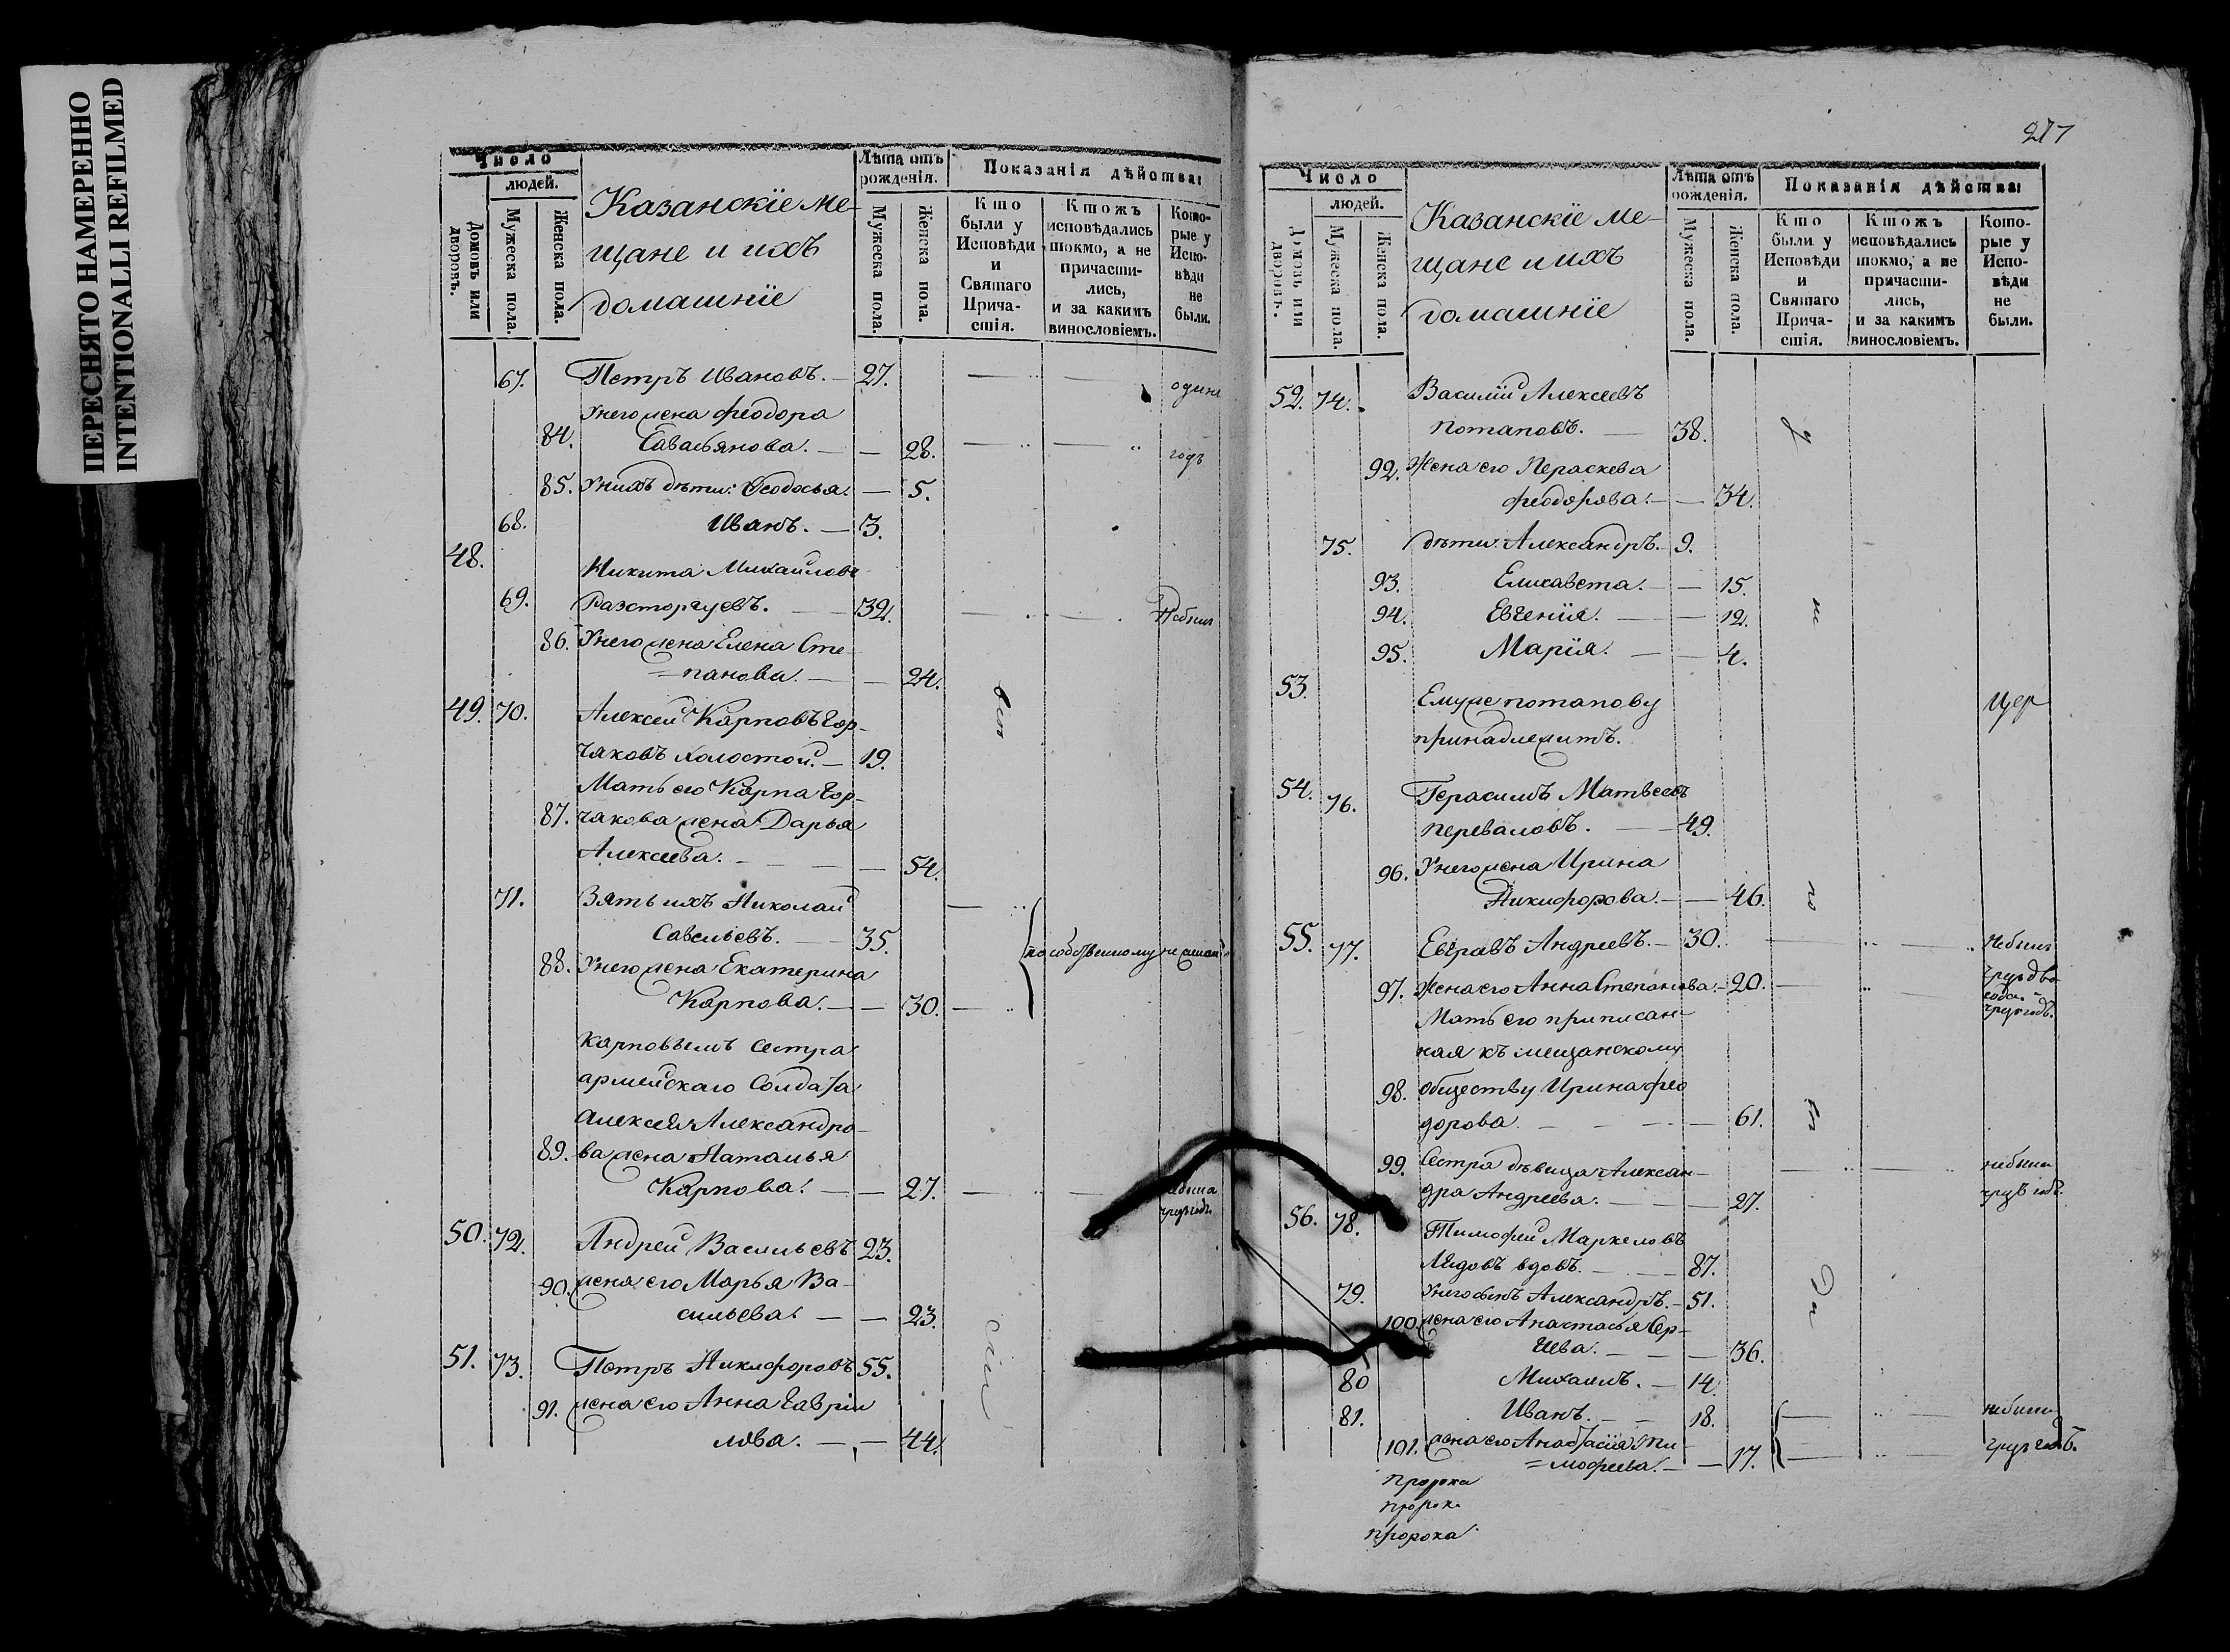 ПЕРЕСНЯТО НАМЕРЕННО
INTENTIONALLI REFILMED
Число
людей.
Домовъ или дворовъ.
Мужеска пола.
Женска пола.
Казанскіе ме-
щане и ихъ
домашніе
Лѣта отъ рожденія.
Мужеска пола.
Женска пола.
Показанія дѣйства:
Кто были у Исповѣди и Святаго Прича-стія.
Ктожъ исповѣдались токмо, а не причасти-лись, и за какимъ винословіемъ.
Кото-рые у Испо-вѣди не были.
67. Петръ Ивановъ. — 27. один
У него жена Феодора
84. Савасьянова. — — 28. годъ
85. У нихъ дѣти: Феодосья. — 5.
68. Иванъ. — 3.
48. Никита Михайловъ
69. Разсторгуевъ. — 32. Небылъ
86. У него жена Елена Сте
=панова. — — 24.
49. 70. Алексей Карповъ Гор-
чаковъ холостой. — 19.
Мать его Карпа Гор-
87. чакова жена Дарья
Алексеева. — — 54.
71. Зять ихъ Николай
Савельевъ. — 35.
по собственному
88. У него жена Екатерина
Карпова. — — 30.
Карповымъ сестра
армейскаго Солдата
Алексея Александро-
89. ва жена Наталья
Карпова. — — 27.
50. 72. Андрей Васильевъ 23.
90. жена его Марья Ва-
сильева. — — 23.
51. 73. Петръ Никифоровъ 55.
91. жена его Анна Гаврiи
лова. — — 44.
277
Число
людей.
Домовъ или дворовъ.
Мужеска пола.
Женска пола.
Казанскіе ме-
щане и ихъ
домашніе
Лѣта отъ рожденія.
Мужеска пола.
Женска пола.
Показанія дѣйства:
Кто были у Исповѣди и Святаго Прича-стія.
Ктожъ исповѣдались токмо, а не причасти-лись, и за какимъ винословіемъ.
Кото-рые у Испо-вѣди не были.
52. 74. Василій Алексеевъ
Потаповъ. — 38.
92. Жена его Пераскева
Феодорова. — — 34.
75. дѣти: Александръ. — 9.
93. Елисавета. — — 15.
94. Евгенія. — — 12.
95. Марія. — — 4.
53. Ему же Потапову Цер
принадлежитъ.
54. 76. Герасимъ Матвеевъ
Переваловъ. — 49.
96. У него жена Ирина
Никифорова. — — 46.
55. 77. Евгравъ Андреевъ. — 30. небылъ
97. Жена его Анна Степанова. — 20. чрезъ два года.
чрезъ годъ.
Мать его приписан-
ная къ мещанскому
98. обществу Ирина Фео
дорова — — 61.
99. Сестра дѣвица Алексан- небыла
дра Андреева. — — 27. чрезъ годъ.
56. 78. Тимофей Маркеловъ
Лядовъ вдовъ. — 87.
79. У него сынъ Александръ. — 51.
100. жена его Анастасья Сер-
геева. — — 36.
80 Михаилъ. — 14.
81. Иванъ. — 18. небыли
101. жена его Анастасія Ти- чрезъ годъ.
=мофеева. — — 17.
пророка
пророка
пророка